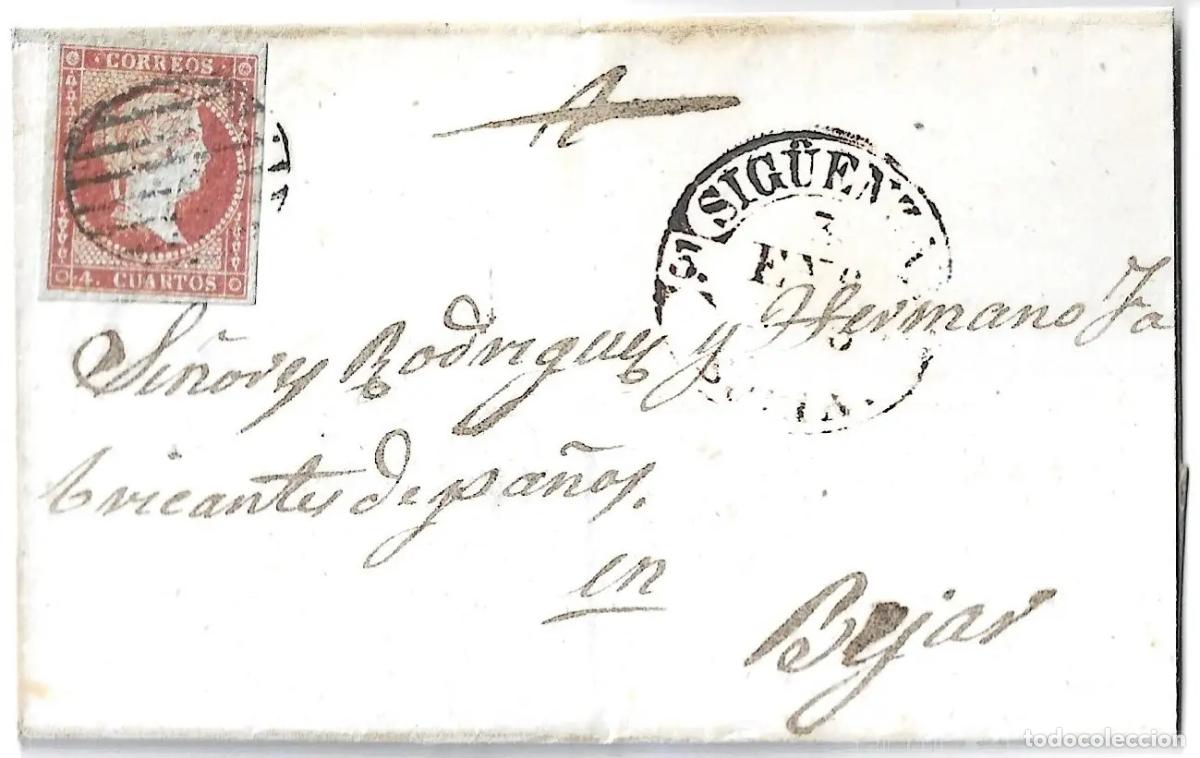 CORREOS
4. CUARTOS
A
SIGÜENZA
ENE
Señores Rodriguez y Hermano Fa
bricantes de paños.
en
Bejar
todocoleccion